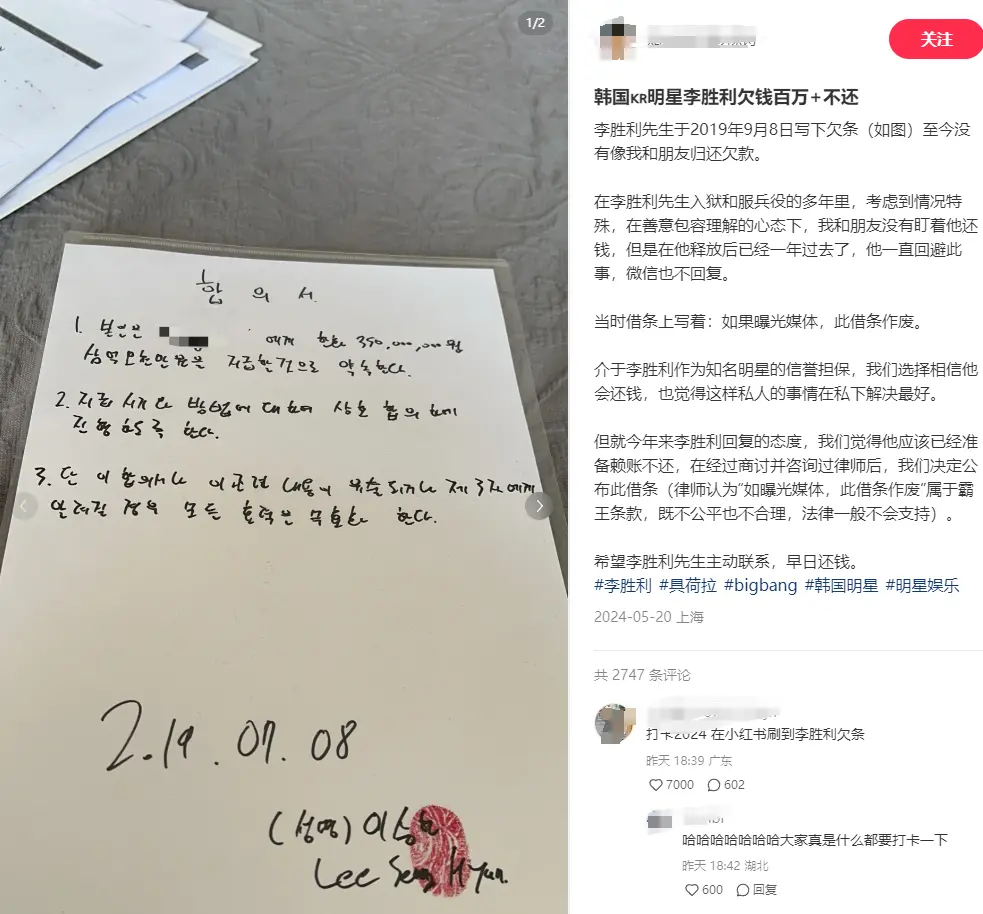 1/2
합 의 서.
1. 본인은 에게 현화 350,000,000원
삼억오천만원을 지급할것으로 약속한다.
2. 지급 시기와 방법에 대하여 상호 합의하에
진행하도록 한다.
3. 단 이 합의서나 이 관련 내용이 유출되거나 제3자에게
알려질 경우 모든 효력은 무효화 한다.
2.19.07.08
(성명) 이승현
Lee Seung Hyun.
关注
韩国KR明星李胜利欠钱百万+不还
李胜利先生于2019年9月8日写下欠条（如图）至今没
有像我和朋友归还欠款。
在李胜利先生入狱和服兵役的多年里，考虑到情况特
殊，在善意包容理解的心态下，我和朋友没有盯着他还
钱，但是在他释放后已经一年过去了，他一直回避此
事，微信也不回复。
当时借条上写着：如果曝光媒体，此借条作废。
介于李胜利作为知名明星的信誉担保，我们选择相信他
会还钱，也觉得这样私人的事情在私下解决最好。
但就今年来李胜利回复的态度，我们觉得他应该已经准
备赖账不还，在经过商讨并咨询过律师后，我们决定公
布此借条（律师认为“如曝光媒体，此借条作废”属于霸
王条款，既不公平也不合理，法律一般不会支持）。
希望李胜利先生主动联系，早日还钱。
#李胜利 #具荷拉 #bigbang #韩国明星 #明星娱乐
2024-05-20 上海
共 2747 条评论
打卡2024 在小红书刷到李胜利欠条
昨天 18:39 广东
7000 602
哈哈哈哈哈哈哈大家真是什么都要打卡一下
昨天 18:42 湖北
600 回复